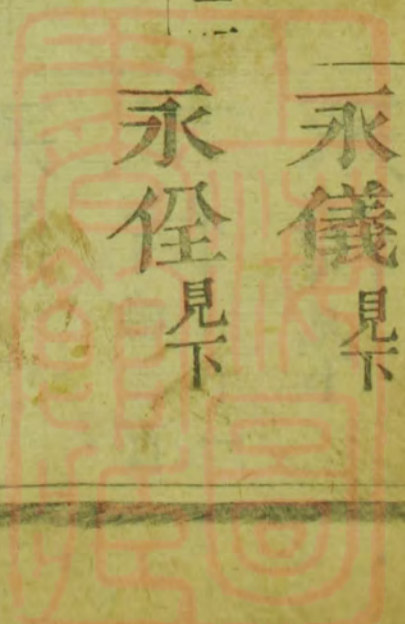 永儀見下
永佺見下